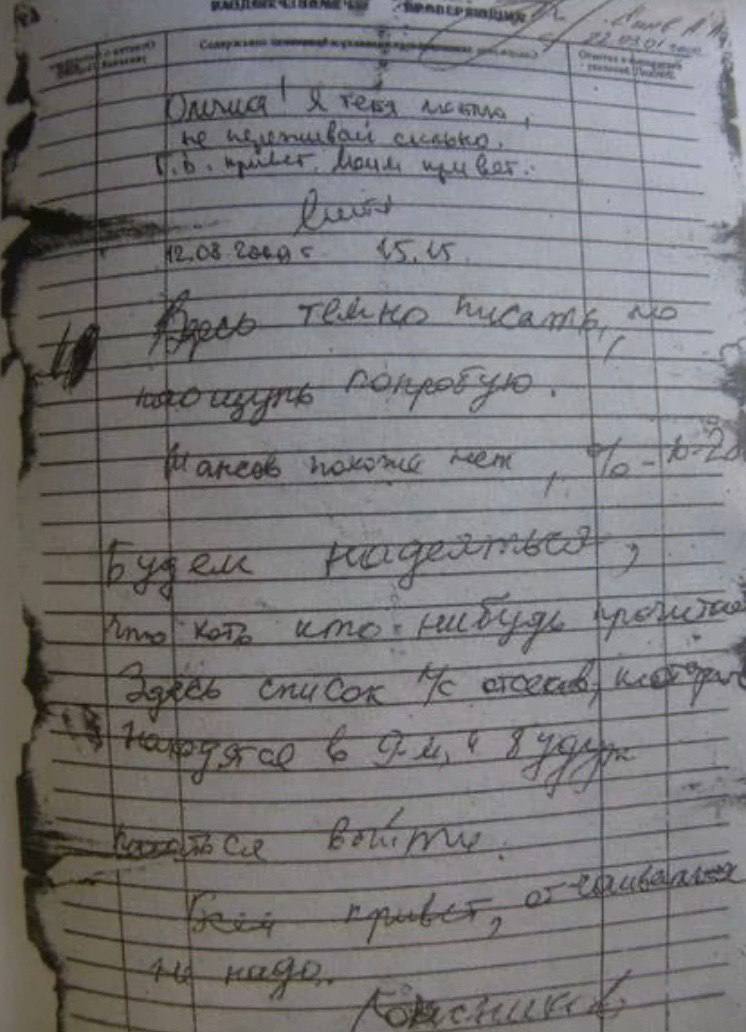 ПРОВЕРЯЮЩИХ
22.03.01
Содержание
Олечка! Я тебя люблю,
не переживай сильно.
Г.В. привет. Моим привет.
Митя
12.08.2000 г 15.15
Здесь темно писать, но
на ощупь попробую.
Шансов похоже нет, % - 10-20
Будем надеяться,
что хоть кто-нибудь прочитает
Здесь список л/с отсеков, которые
находятся в 9-м, и будут
пытаться выйти.
Всем привет, отчаиваться
не надо.
Колесников